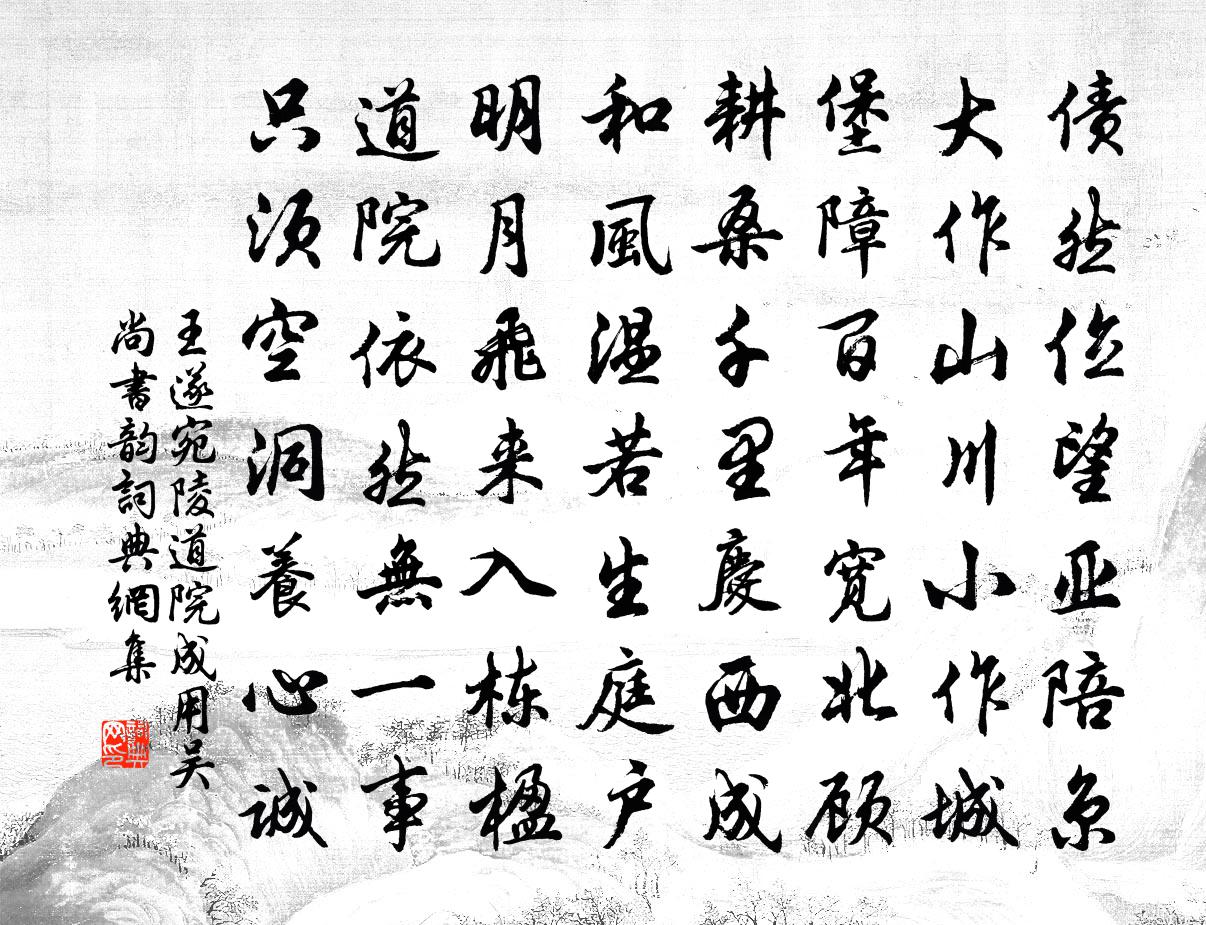 债然俭望亚陪京
大作山川小作城
堡障百年寛北顾
耕桑千里慶西成
和風温若生庭户
明月飛来入栋楹
道院依然無一事
只须空洞養心誠
王遂宛陵道院成用吴
尚書韵詞典網集